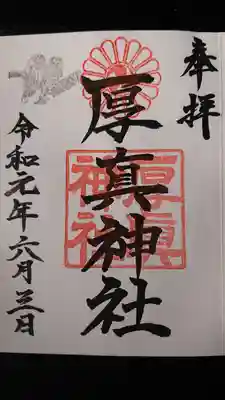 奉拝
厚真神社
厚真
神社
令和元年六月三日